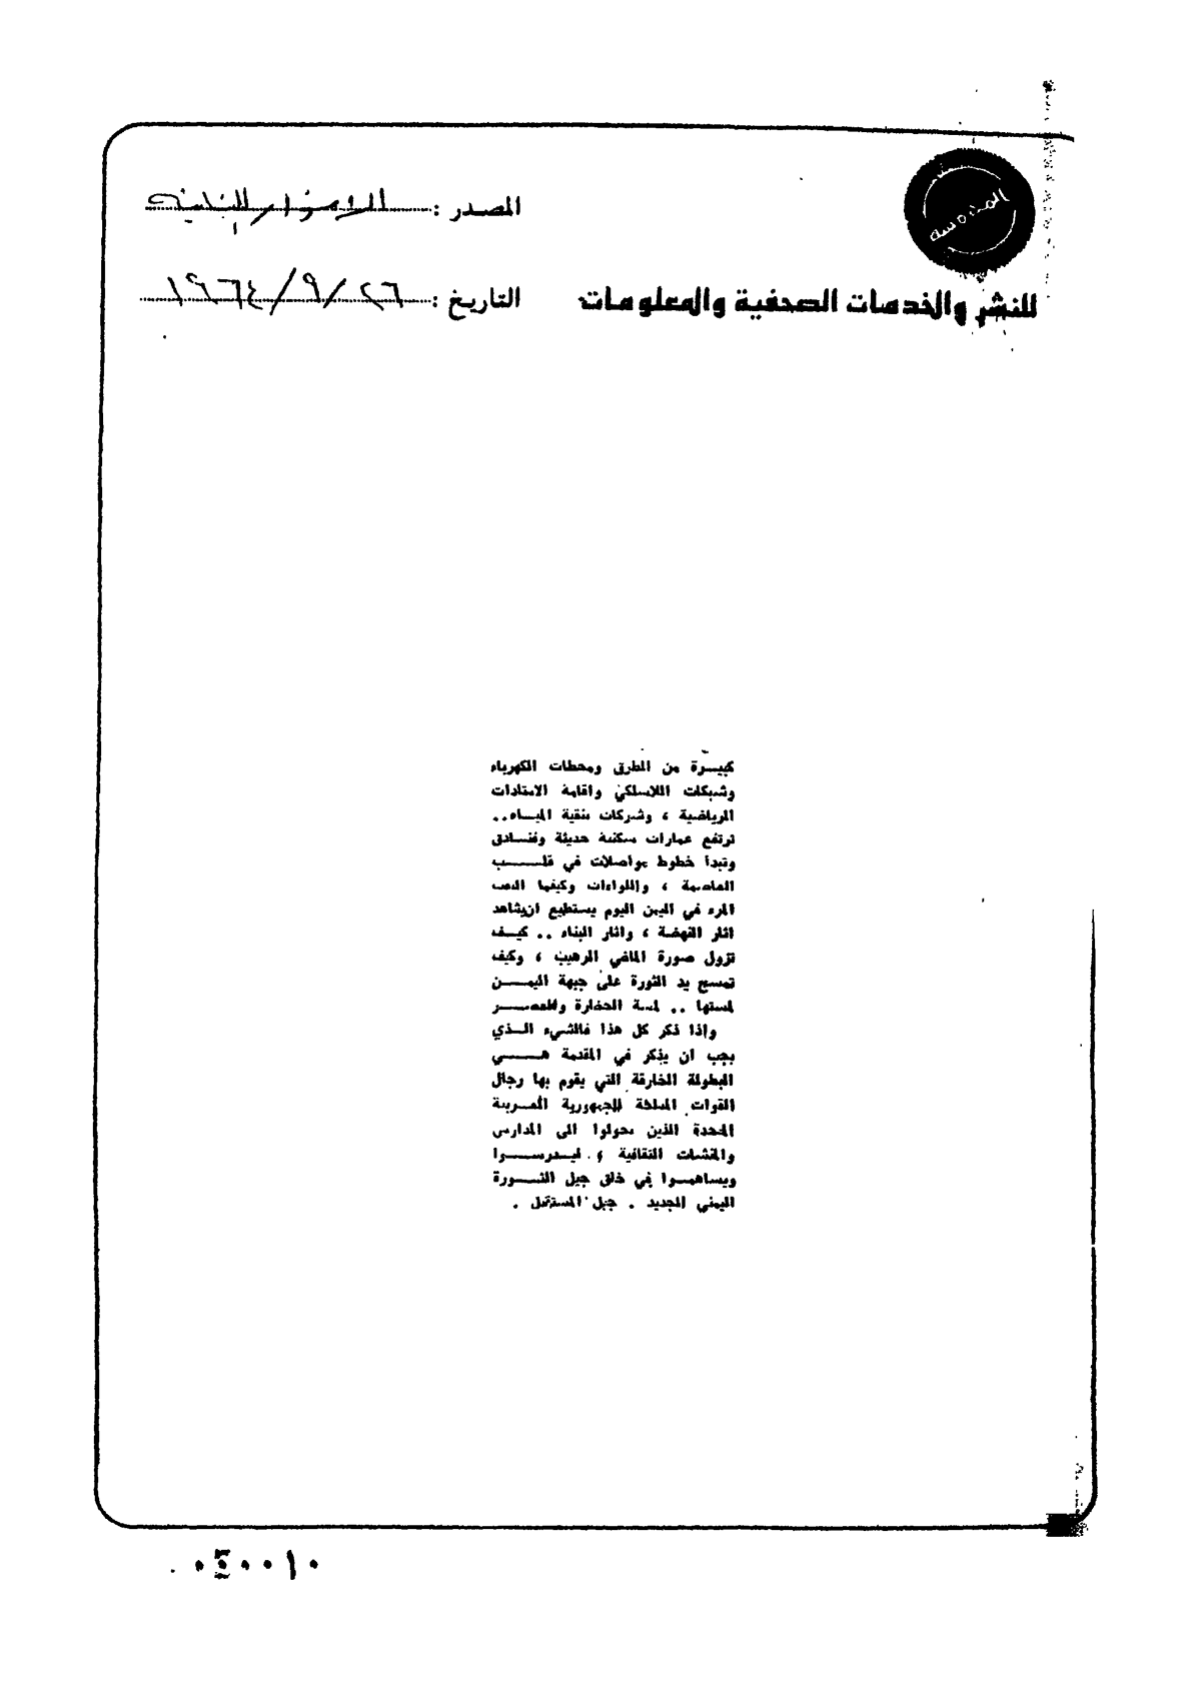 المحروسة
للنشر والخدمات الصحفية والمعلومات
المصدر : الانوار اللبنانية
التاريخ : ٢٦ / ٩ / ١٩٦٤
كبيـرة من الطرق ومحطات الكهرباء
وشبكات اللاسلكي واقامة الاستادات
الرياضية ، وشركات تنقية الميـاه..
ترتفع عمارات سكنية حديثة وفنـادق
وتبدأ خطوط مواصلات في قلـــب
العاصمة ، واللواءات وكيفما التفت
المرء في اليمن اليوم يستطيع ان يشاهد
اثار النهضة ، واثار البناء .. كيـف
تزول صورة الماضي الرهيب ، وكيف
تمسح يد الثورة على جبهة اليمـــن
لمستها .. لمسة الحضارة والعصــر
واذا ذكر كل هذا فالشيء الـذي
يجب ان يذكر في المقدمة هـــي
البطولة الخارقة التي يقوم بها رجال
القوات المسلحة للجمهورية العـربية
المتحدة الذين تحولوا الى المدارس
والمنشآت الثقافية ، ليـدرســـوا
ويساهمـوا في خلق جيل الثـــورة
اليمني الجديد . جيل المستقبل .
٠٤٠٠١٠